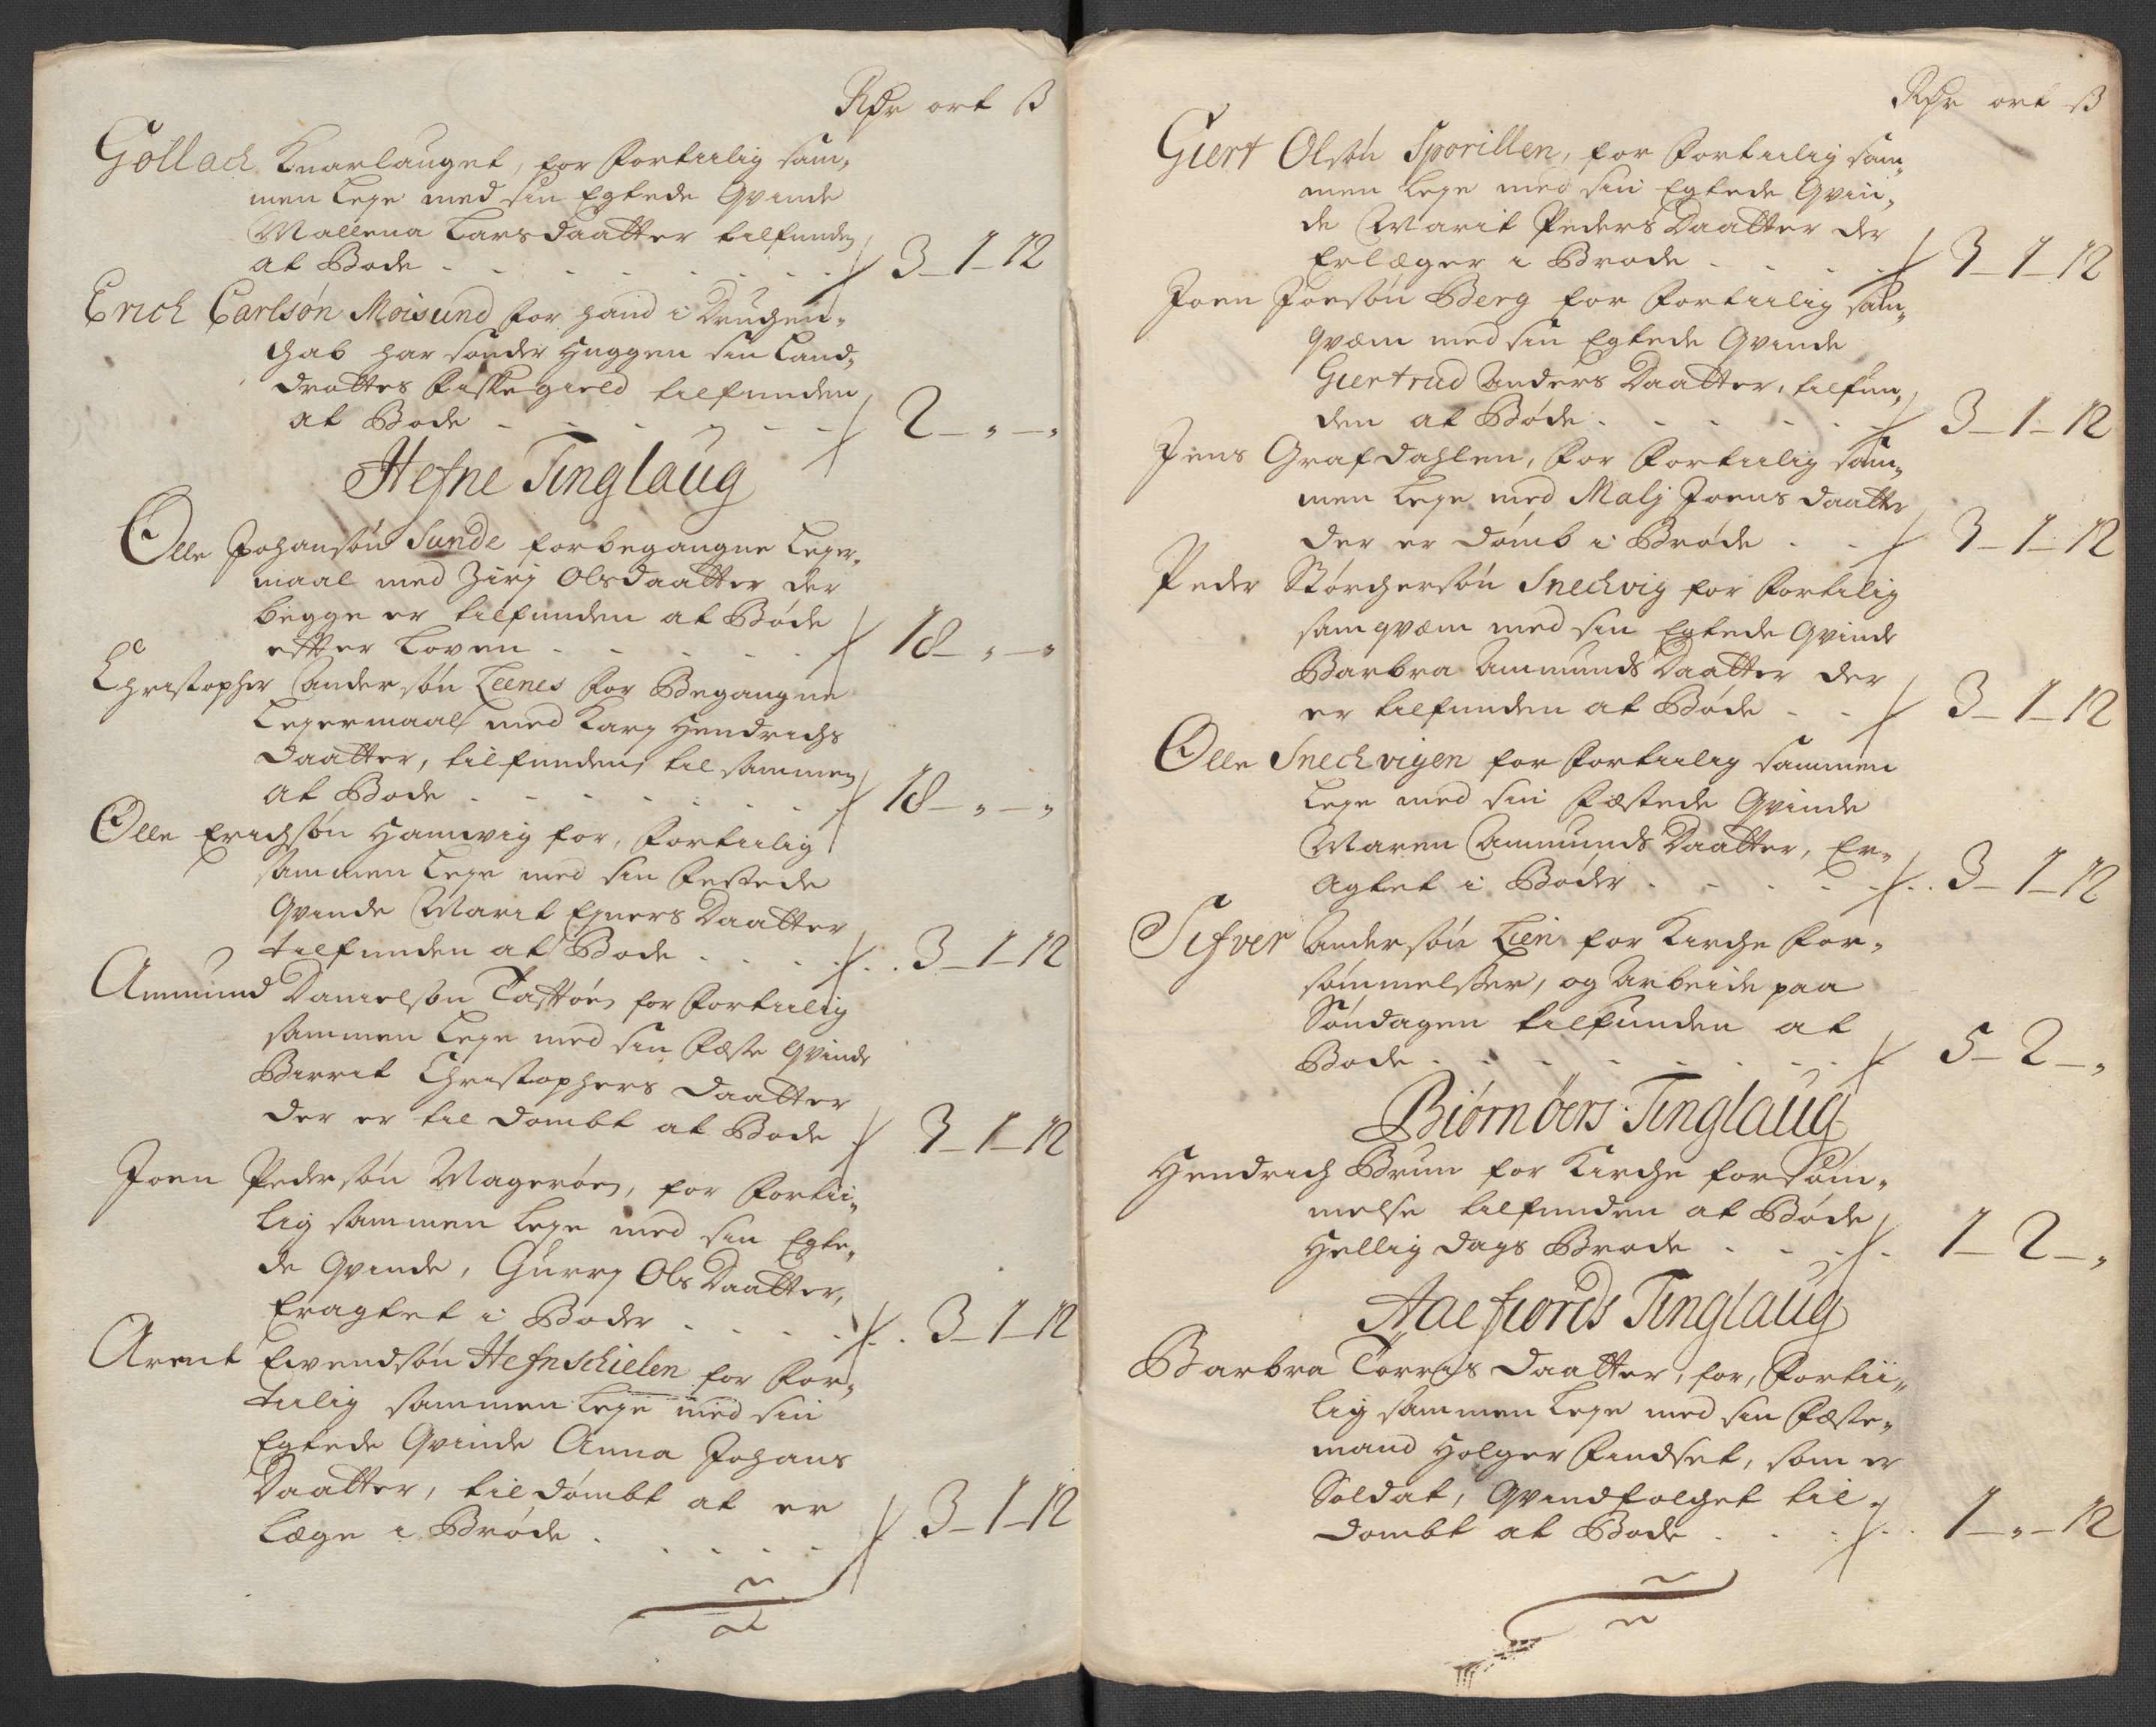 Rdr ort ß
Gollach Knarlauget, for fortiilig sam-
men leye med sin Egtede Qvinde
Mallena Larsdaatter tilfunden
at Bode . . . . . . . . 3 - 1 - 12
Erich Carlsøn Moisund for hand i Druchen-
chab har sønder Huggen sin Land-
drottes Fiskegield tilfunden
at Bode - - - - - - 2 - " - "
Hefne Tinglaug
Olle Johansøn Sunde forbegangne Leyer-
maal med Zirj Olsdaatter der
begge er tilfunden at Bøde
efter Loven - - - - - - 18 - " - "
Christopher Andersøn Leenes for Begangne
Leyermaal med Karj Hendrichs
daatter, tilfunden, til sammen
at Bode - - - - - - - 18 - " - "
Olle Erichsøn Hamvig for, fortiilig
sammen Leye med sin festede
Qvinde Marit Eyners Daatter
tilfunden at Bode . . . . . 3 - 1 - 12
Ammund Danielsøn Tastøen for fortiilig
sammen Leye med sin fæste Qvinde
Birrit Christophers daatter
der er til dømbt at Bode . 3 - 1 - 12
Joen Pedersøn Magerøen, for fortii-
lig sammen leye med sin Egte-
de Qvinde, Gurrj Ols Daatter,
Eragtet i Boder . . . . . 3 - 1 - 12
Arent Evendsøn Hefnschielen for for-
tiilig sammen leye med sin
Egtede Qvinde Anna Johans
Daatter, til dømbt at er
læge i Brøde . . . . . . 3 - 1 - 12
Rdr ort ß
Giert Olsøn Sporillen, for fortiilig sam-
men leye med sin Egtede Qvin-
de Marit Peders Daatter der
Erlæger i Brøde . . . . 3 - 1 - 12
Joen Joensøn Berg for fortiilig sam-
qvæm med sin Egtede Qvinde
Giertrud Anders Daatter, tilfun-
den at Bøde . . . . . . 3 - 1 - 12
Jens Grafdahlen, for fortiilig sam-
men leye med Malj Joens daatter
der er dømb i Brøde . . 3 - 1 - 12
Peder Størchersøn Snechvig for fortilig
samqvæm med sin Egtede Qvinde
Barbra Ammunds Daatter der
er tilfunden at Bøde - - 3 - 1 - 12
Olle Snechvigen for fortiilig sammen
leye med sin fæstede Qvinde
Maren Ammunds Daatter, Er-
agtet i Bøder . . . . . . 3 - 1 - 12
Sifver Andersøn Lien for Kirche for-
sømmelsser, og Arbeide paa
Søndagen tilfunden at
Bode . . . . . . . . 5 - 2 - "
Biørnøers Tinglaug
Hendrich Brun for Kirche forsøm-
melse tilfunden at Bøde
Hellig dags Brøde . . . . 1 - 2 - "
Aaefiords Tinglaug
Barbra Torris daatter, for, fortii-
lig sammen leye med sin fæste-
mand Holger Findset, som er
Soldat, Qvindfolchet til-
dømbt at Bode . . . . 1 - " - 12